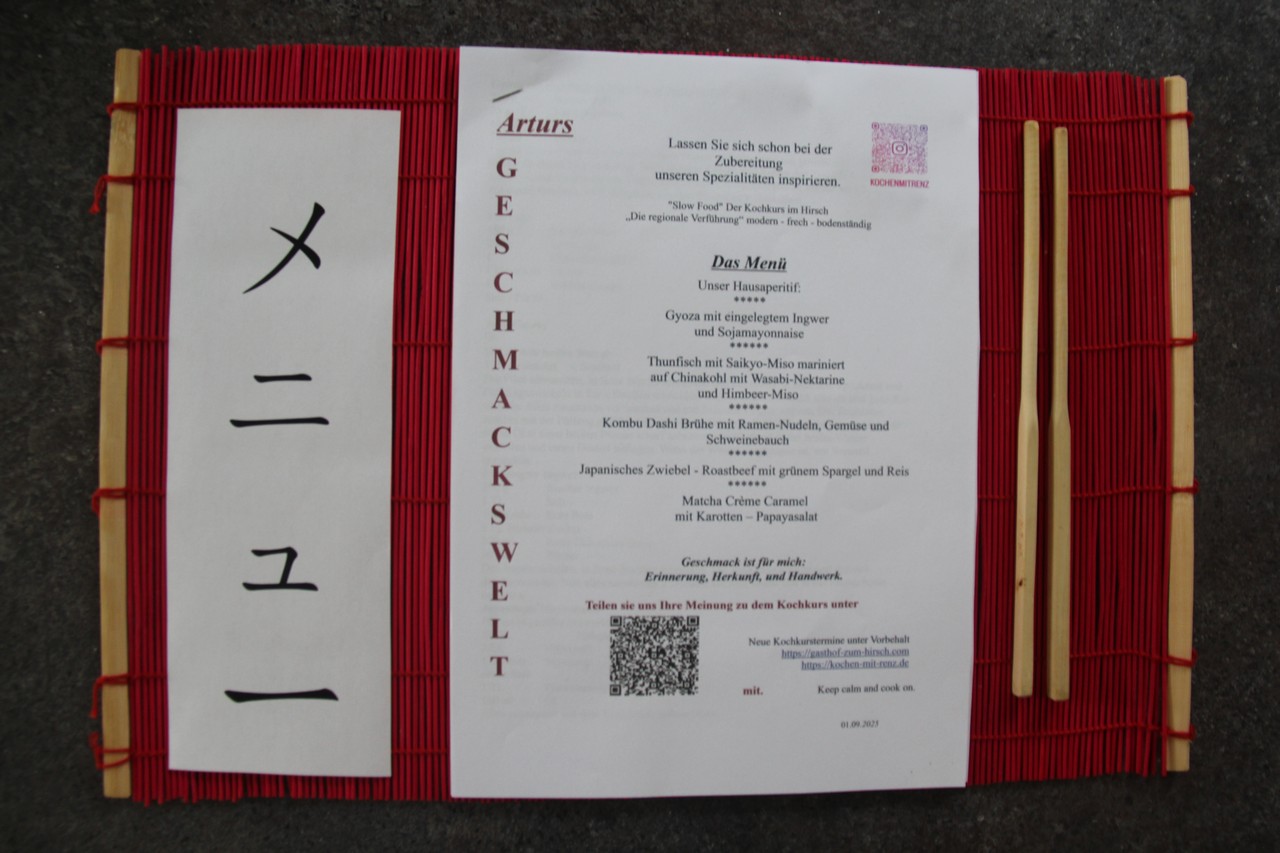 メ
ニ
ュ
ー
Arturs
G
E
S
C
H
M
A
C
K
S
W
E
L
T
Lassen Sie sich schon bei der
Zubereitung
unseren Spezialitäten inspirieren.
KOCHENMITRENZ
"Slow Food" Der Kochkurs im Hirsch
„Die regionale Verführung“ modern - frech - bodenständig
Das Menü
Unser Hausaperitif:
*****
Gyoza mit eingelegtem Ingwer
und Sojamayonnaise
******
Thunfisch mit Saikyo-Miso mariniert
auf Chinakohl mit Wasabi-Nektarine
und Himbeer-Miso
******
Kombu Dashi Brühe mit Ramen-Nudeln, Gemüse und
Schweinebauch
******
Japanisches Zwiebel - Roastbeef mit grünem Spargel und Reis
******
Matcha Crème Caramel
mit Karotten – Papayasalat
Geschmack ist für mich:
Erinnerung, Herkunft, und Handwerk.
Teilen sie uns Ihre Meinung zu dem Kochkurs unter
Neue Kochkurstermine unter Vorbehalt
https://gasthof-zum-hirsch.com
https://kochen-mit-renz.de
mit.
Keep calm and cook on.
01.09.2023